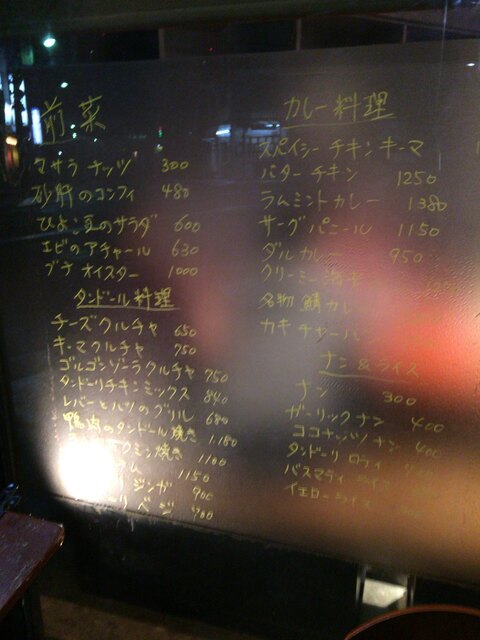 前菜
マサラナッツ 300
砂肝のコンフィ 480
ひよこ豆のサラダ 600
エビのアチャール 630
プチオイスター 1000
タンドール料理
チーズクルチャ 650
キーマクルチャ 750
ゴルゴンゾーラクルチャ 750
タンドーリチキンミックス 840
レバーとハツのグリル 680
鴨肉のタンドール焼き 1,180
クミン焼き 1100
ム 1150
ジンガ 900
リベジ 900
カレー料理
スパイシーチキンキーマ
バターチキン 1250
ラムミントカレー 1380
サーグパニール 1150
ダルカレー 950
クリーミー
名物 鯖カレ
カキ チャー
ナン&ライス
ナン 300
ガーリックナン 400
ココナッツナン 400
タンドーリ ロティ
バスマティ
イエローライス